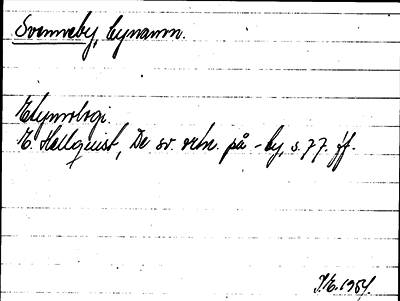 Svenneby, bynamn.
Etymologi.
E. Hellquist, De sv. ortn. på -by, s. 77. ff.
1984.